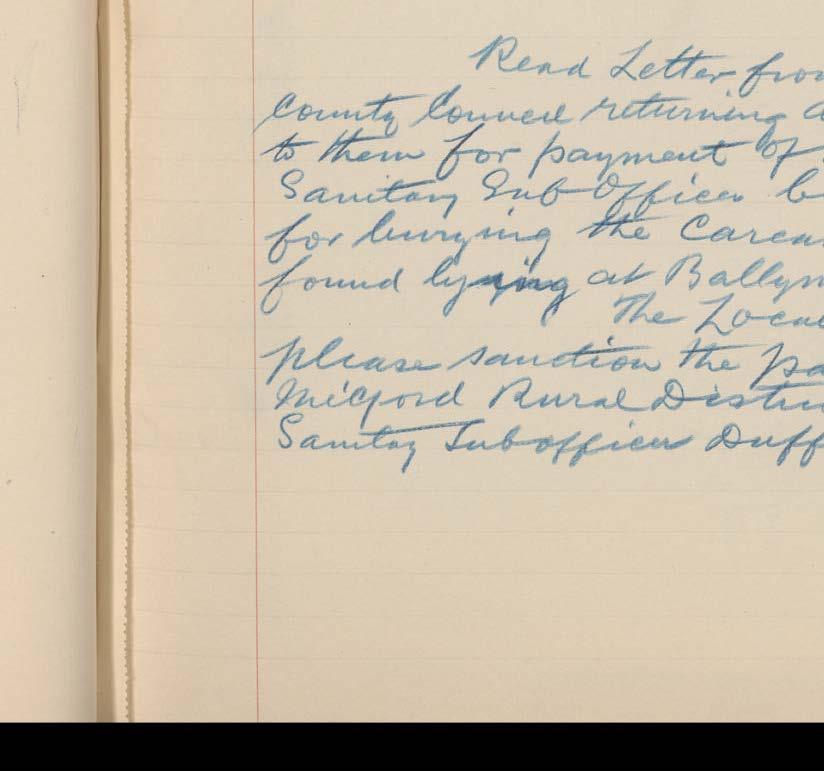 Read Letter from
County Council returning a
to them for payment of
Sanitary Sub Officer b
for burying the Carcas
found lying at Ballym
The Local
please sanction the pa
Milford Rural Distric
Sanitay Sub officer Duff